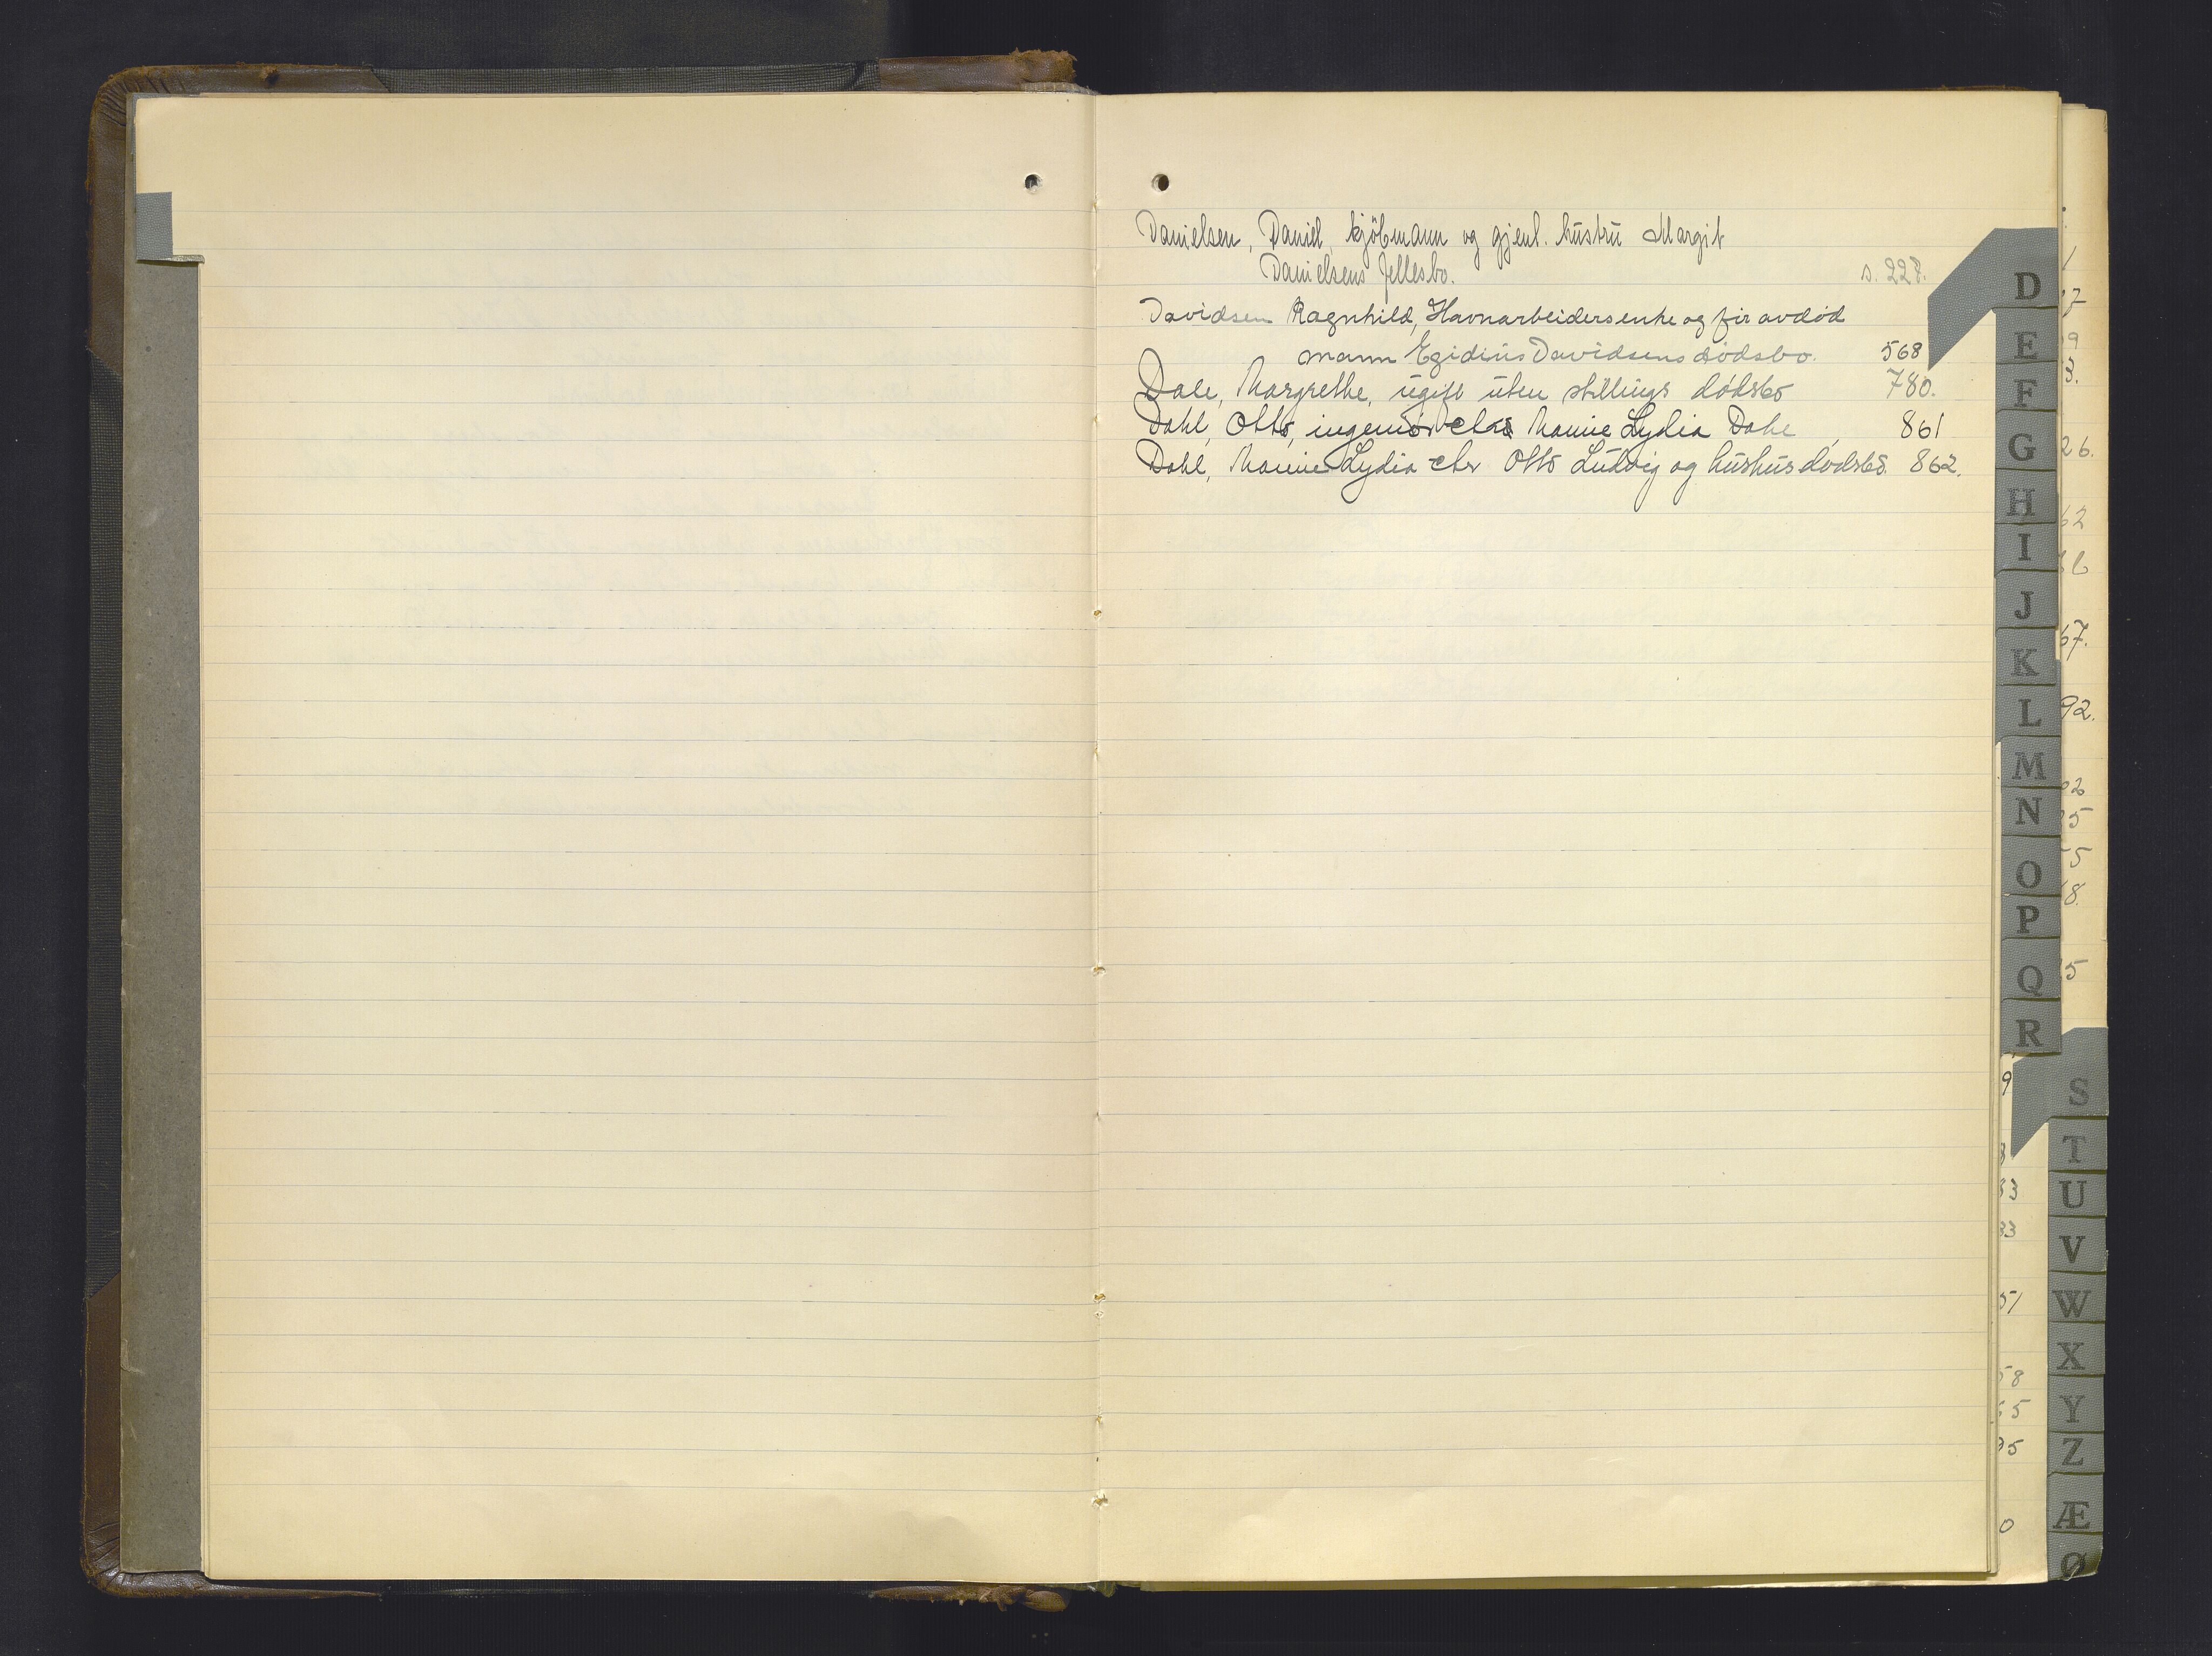 Danielsen, Daniel, kjöbmann og gjenl. hustru Margit
Danielsens fellesbo. s. 227.
Davidsen Ragnhild, Havnarbeidersenke og fir avdöd
mann Egidius Davidsens dödsbo. 568
Dale, Margrethe, ugift uten stillings dödsbo 780.
Dahl, Otto, ingeniör Lydia 861
Dahl, Lydia Otto Ludvig og dödsbo. 862.
D
E
F
G
H
I
J
K
L
M
N
O
P
Q
R
S
T
U
V
W
X
Y
Z
Æ
Ø